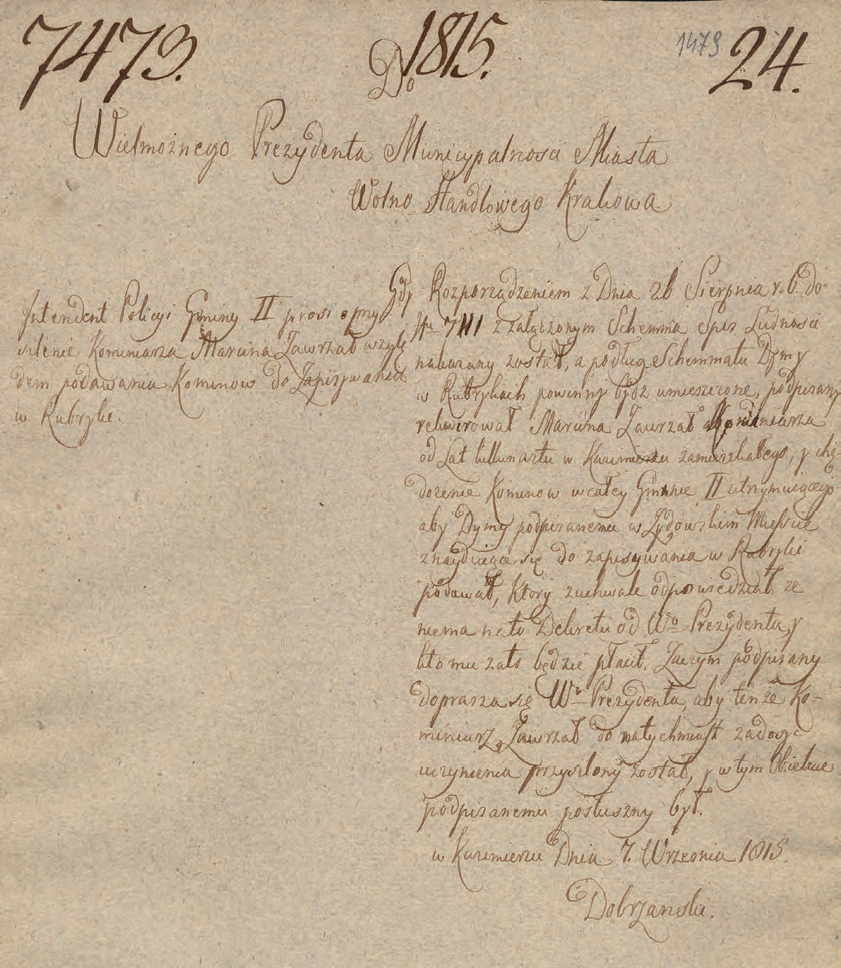 7473.
1815.
1473
24.
Do
Wielmożnego Prezydenta Municypalnosci Miasta
Wolno Handlowego Krakowa
Intendent Policyi Gminy II prosi o przy
silenie Kominiarza Marcina Zawrzał wzglę
dem podawania Kominow do Zapisywania
w Rubryki.
Gdy Rozporządzeniem z Dnia 26 Sierpnia r. b. do
Nu 7111 z załączonym Schemma Spis Ludnosci
nakazany został, a podług Schemmatu Dymy
w Rubrykach powinny bydz umieszczone, podpisany
rekwirował Marcina Zawrzał Kominiarza
od Lat kilkunastu w Kazimierzu zamieszkałego, y chę
dożenie Kominow w całey Gminie II utrzymuiącego
aby Dymy podpisanemu w Żydowskim Miescie
znayduiące się do zapisywania w Rubryki
podawał, ktory zuchwale odpowiedział ze
niema na to Dekretu od Wo Prezydenta, y
kto mu zato będzie płacił. Zaczym podpisany
doprasza się Wo Prezydenta, aby tenże Ko-
miniarz Zawrzał do natychmiast zadosyc
uczynienia przysilony został, y w tym Obiekcie
podpisanemu posłuszny był.
w Kazimierzu Dnia 7. Wrzesnia 1815.
Dobrzanski.